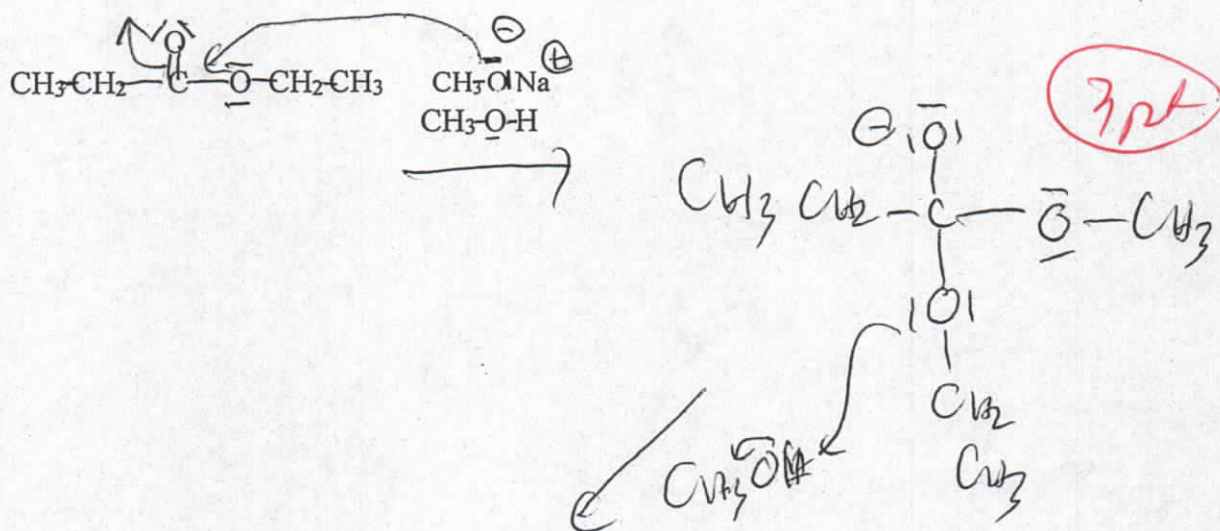 O
CH3-CH2-C-O-CH2-CH3
CH3-O Na
CH3-O-H
3 pt
⊖ O
CH3 CH2-C-O-CH3
O
CH2
CH3
CH3OH